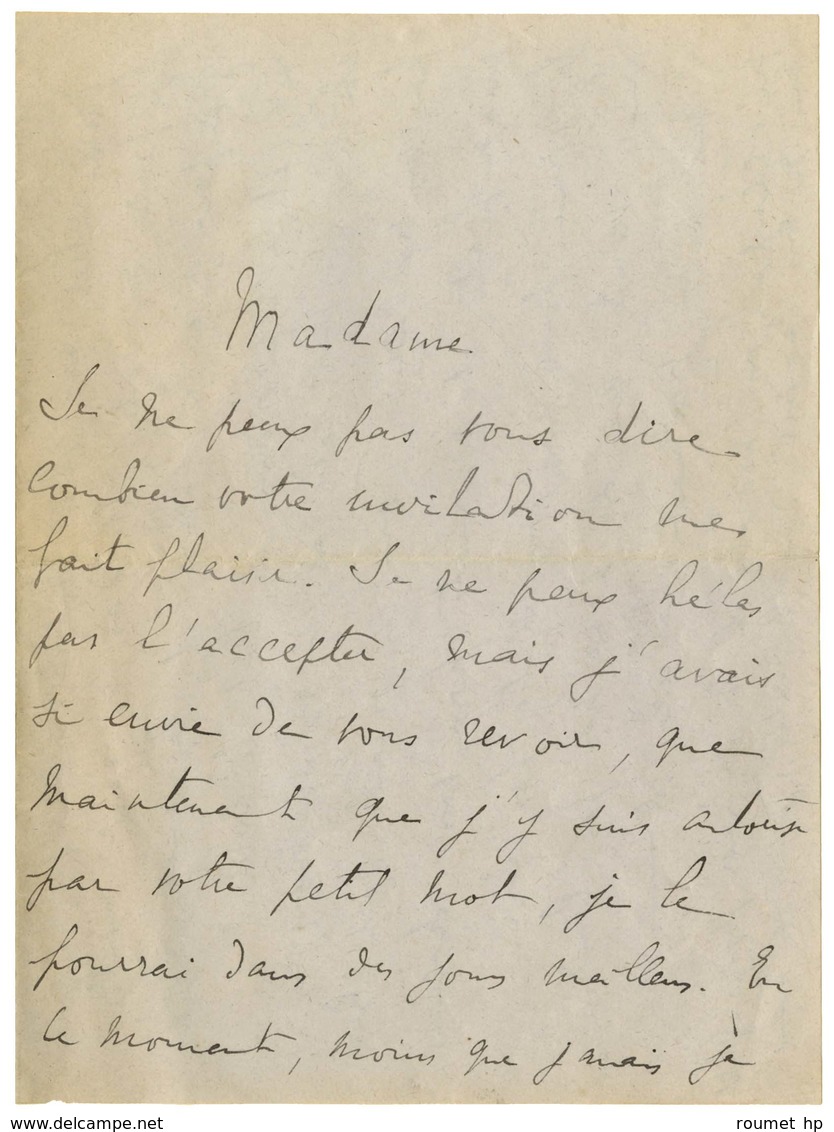 Madame
Je ne peux pas vous dire
combien votre invitation me
fait plaisir. Je ne peux hélas
pas l'accepter, mais j'avais
si envie de vous revoir, que
maintenant que j'y suis autorisé
par votre petit mot, je le
pourrai dans des jours meilleurs. En
ce moment, moins que jamais je
www.delcampe.net
roumet hp